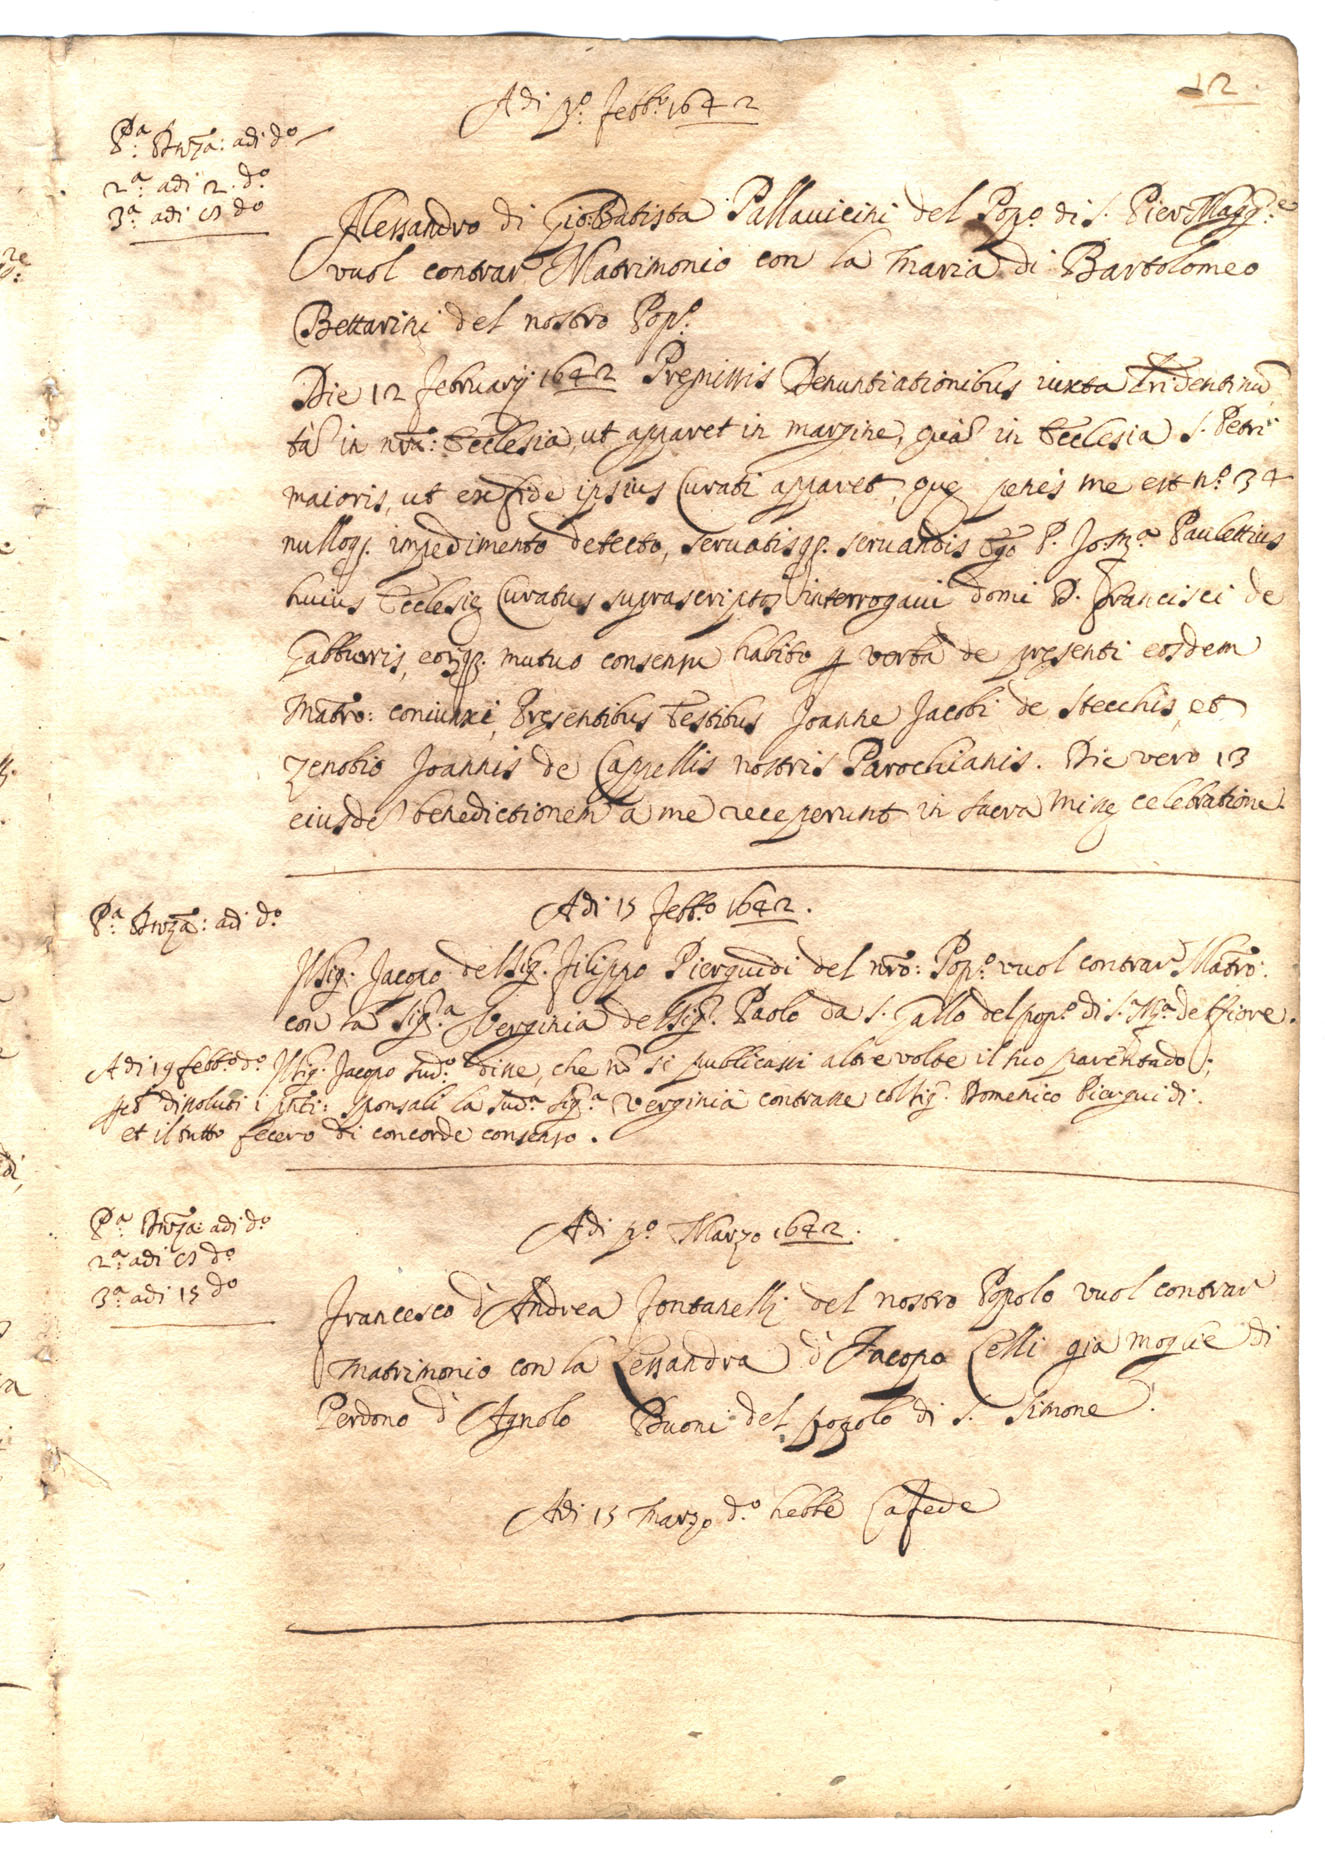 12.
Adi p.o febb.o 1642
P.a Dnza: adi d.o
2.a adi 2. d.o
3.a adi 9 d.o
Alessandro di Gio:Batista Pallauicini del Pop.o di S. Pier Magg.e
vuol contrar Matrimonio con la Maria di Bartolomeo
Bettarini del nostro Pop.o
Die 12 february 1642 Premissis Denuntiationibus iuxta Tridentinũ
tã in nrã: Ecclesia, ut apparet in margine, quã in Ecclesia S. Petri
maioris, ut ex fide ipsius Curati apparet, quę penes me est n.o 34
nulloq. impedimento detecto, seruatisq. seruandis Ego P. Jo:M.a Paulettius
huius Ecclesię Curatus suprascriptos interrogaui domi D. Francisci de
Gabburris, eorq. mutuo consensu habito p verba de pręsenti eosdem
Matro: coniunxi, Pręsentibus Testibus Joanne Jacobi de Stecchis, et
Zenobio Joannis de Cappellis nostris Parochianis. Die vero 13
eiusdẽ benedictionem a me receperunt in sacra missę celebratione.
Adi 15 febb.o 1642.
P.a Dnza: adi d.o
Il Sig. Jacopo del Sig. Filippo Pierguidi del nro: Pop.o vuol contrar Matro:
con la Sig.a Verginia del Sig. Paolo da S. Gallo del pop.o di S. M.a del fiore.
Adi 19 febb.o d.o Il Sig. Jacopo sud.o disse, che nõ si publicassi altre volte il suo parentado;
dissoluti i pnti: sponsali la sud.a Sig.a Verginia contrasse col Sig. Domenico Pierguidi.
et il tutto fecero di concorde consenso.
Adi p.o Marzo 1642.
P.a Dnza: adi d.o
2.a adi 9 d.o
3.a adi 15 d.o
Francesco d'Andrea Fontanelli del nostro Popolo vuol contrar
matrimonio con la Lessandra d'Jacopo Celli gia moglie di
Perdono d'Agnolo Buoni del popolo di S. Simone.
Adi 15 Marzo d.o hebbe la fede